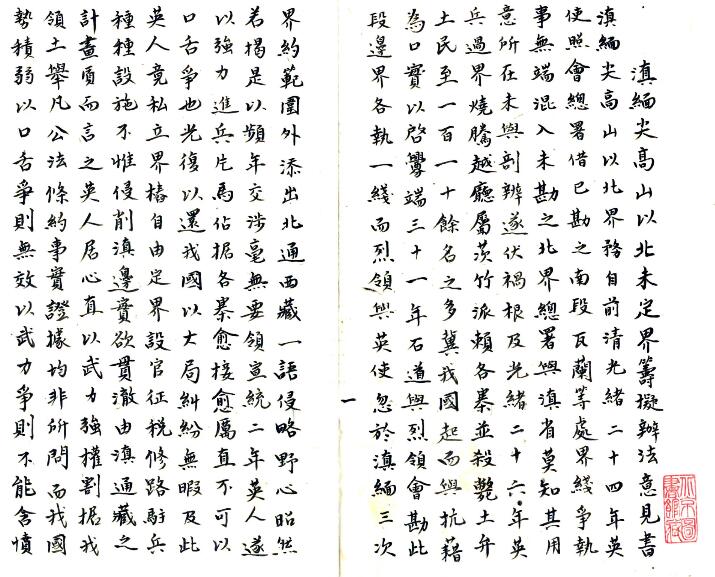 滇緬尖高山以北未定界籌擬辦法意見書
滇緬尖高山以北界務自前清光緒二十四年英
使照會總署借已勘之南段瓦蘭等處界綫爭執
事無端混入未勘之北界總署與滇省莫知其用
意所在未與剖辨遂伏禍根及光緒二十六年英
兵過界燒騰越廳屬茨竹派賴各寨並殺斃土弁
土民至一百一十餘名之多冀我國起而與抗藉
為口實以啓釁端三十一年石道與烈領會勘此
段邊界各執一綫而烈領與英使忽於滇緬三次
一
界約範圍外添出北通西藏一語侵略野心昭然
若揭是以頻年交涉毫無要領宣統二年英人遂
以強力進兵片馬佔据各寨愈接愈厲直不可以
口舌爭也光復以還我國以大局糾紛無暇及此
英人竟私立界樁自由定界設官征稅修路駐兵
種種設施不惟侵削滇邊實欲貫澈由滇通藏之
計畫質而言之英人居心直以武力強權割据我
領土舉凡公法條約事實證據均非所問而我國
勢積弱以口舌爭則無效以武力爭則不能含憤